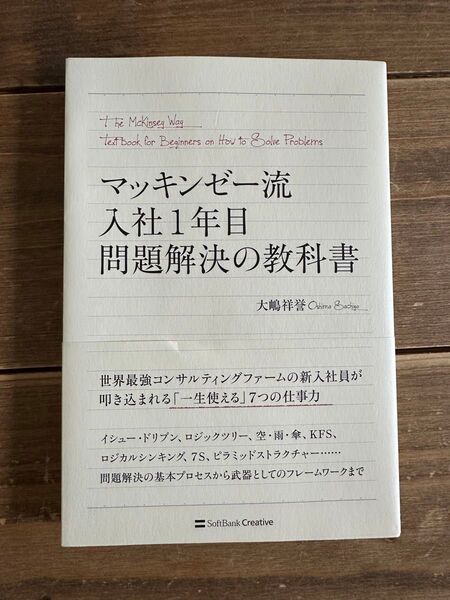 The McKinsey Way
Textbook for Beginners on How to Solve Problems
マッキンゼー流
入社1年目
問題解決の教科書
大嶋祥誉 Oshima Sachiyo
世界最強コンサルティングファームの新入社員が
叩き込まれる「一生使える」7つの仕事力
イシュー・ドリブン、ロジックツリー、空・雨・傘、KFS、
ロジカルシンキング、7S、ピラミッドストラクチャー……
問題解決の基本プロセスから武器としてのフレームワークまで
SoftBank Creative